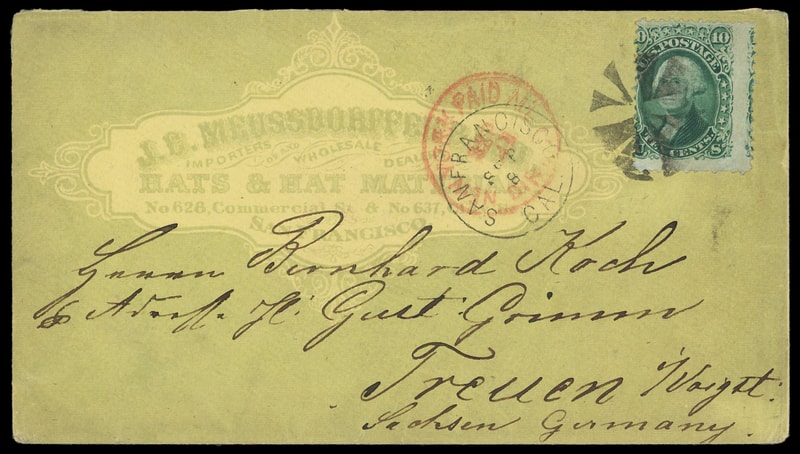 J.C. MEUSSDORFFER
IMPORTERS OF AND WHOLESALE DEALERS
HATS & HAT MAT
No 628, Commercial St & No 637,
SAN FRANCISCO
PAID ALL
SAN FRANCISCO
CAL
10
U.S. POSTAGE
TEN CENTS.
Herrn Bernhard Koch
p Adresse H: Gust: Grimm
Treuen /Voigt:
Sachsen Germany.